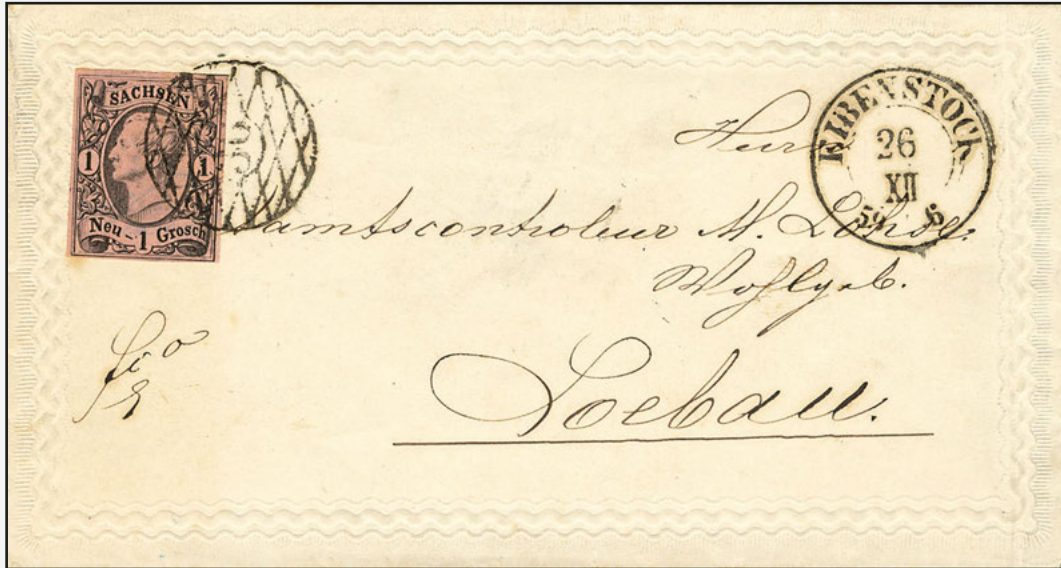 SACHSEN
1 1
Neu - 1 Grosch
EIBENSTOCK
26
XII
59 6
Herrn
amtscontroleur M.
Wohlgeb.
Loebau.